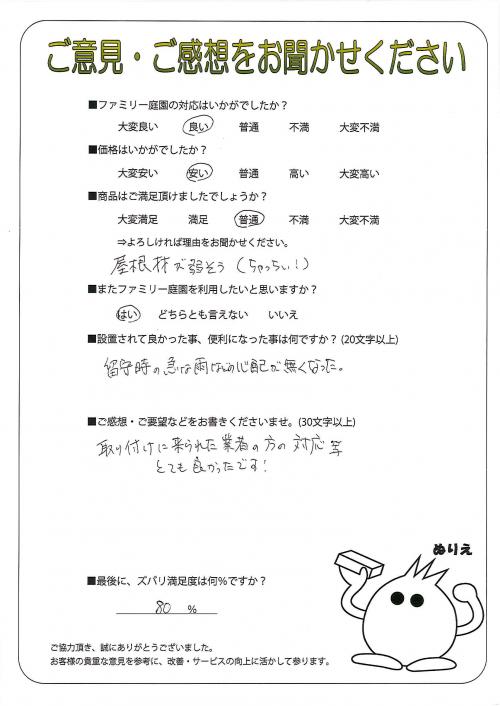 ご意見・ご感想をお聞かせください
■ファミリー庭園の対応はいかがでしたか？
大変良い 良い 普通 不満 大変不満
■価格はいかがでしたか？
大変安い 安い 普通 高い 大変高い
■商品はご満足頂けましたでしょうか？
大変満足 満足 普通 不満 大変不満
⇒よろしければ理由をお聞かせください。
屋根材が弱そう（ちゃっちい！）
■またファミリー庭園を利用したいと思いますか？
はい どちらとも言えない いいえ
■設置されて良かった事、便利になった事は何ですか？(20文字以上)
留守時の急な雨なの心配が無くなった。
■ご感想・ご要望などをお書きくださいませ。(30文字以上)
取り付けに来られた業者の方の対応等
とても良かったです！
ぬりえ
■最後に、ズバリ満足度は何％ですか？
80 %
ご協力頂き、誠にありがとうございました。
お客様の貴重な意見を参考に、改善・サービスの向上に活かして参ります。